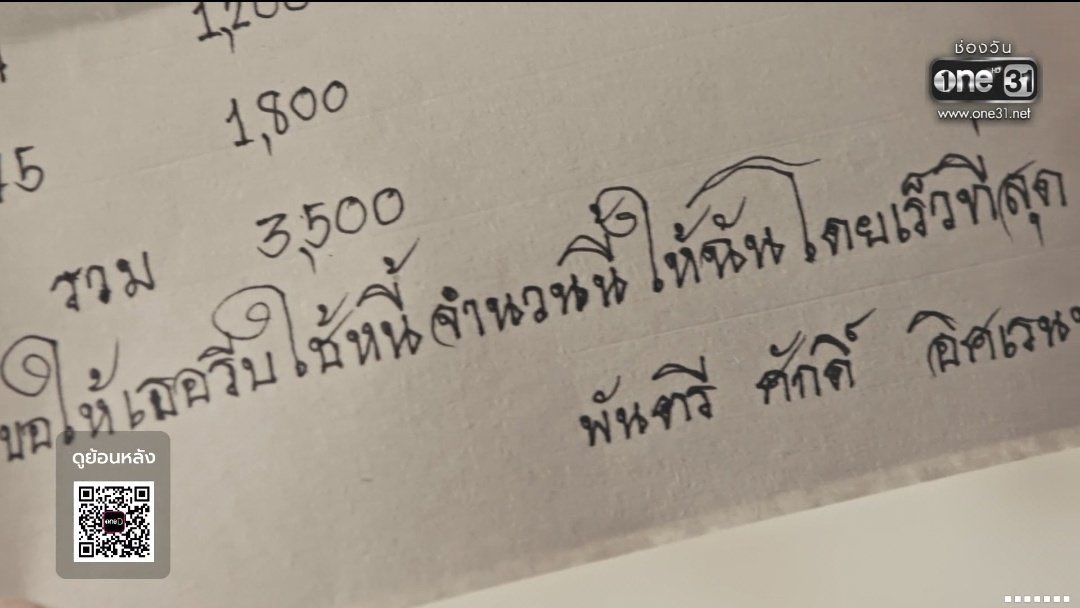 1,200
ช่องวัน
one HD 31
www.one31.net
1,800
5
รวม 3,500
ขอให้เธอรีบใช้หนี้จำนวนนี้ให้ฉันโดยเร็วที่สุด
พันตรี ศักดิ์
ดูย้อนหลัง
oneD